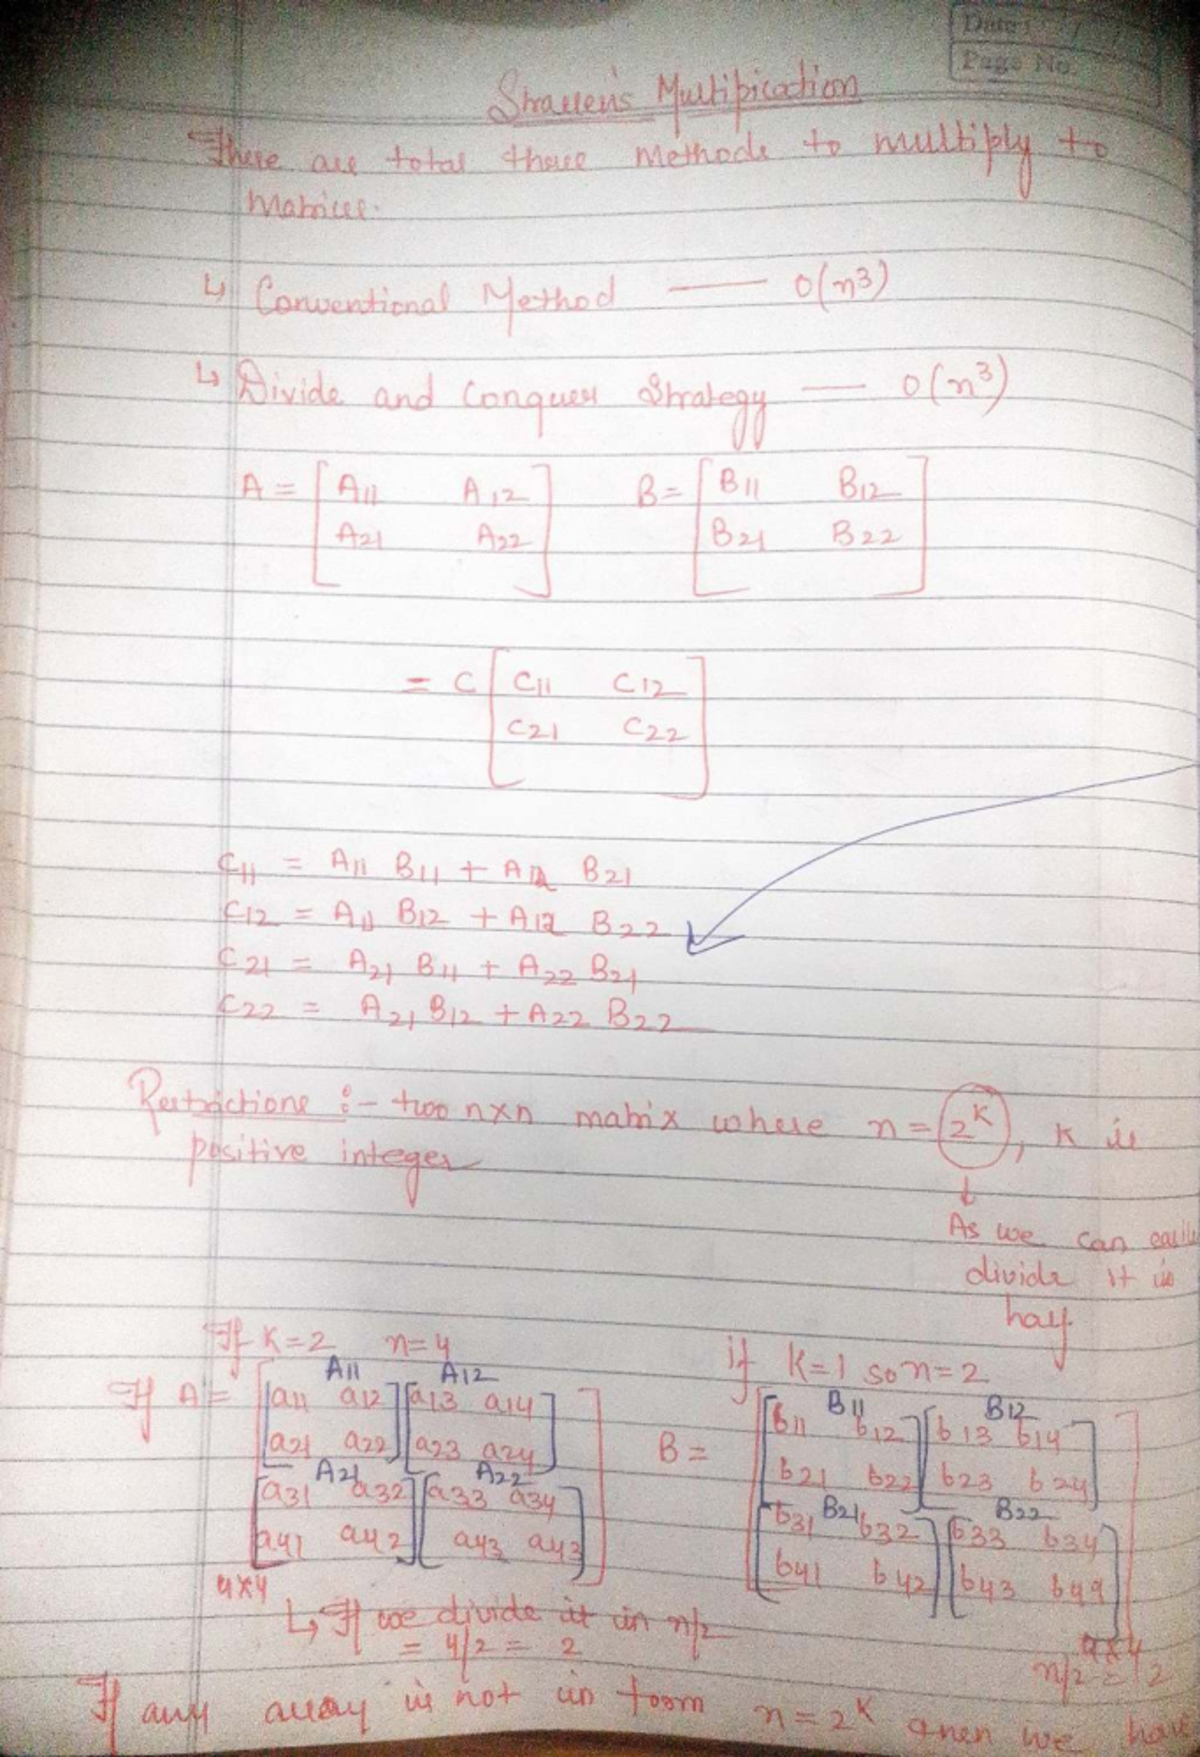 Date :
Page No.
Strassen's Multiplication
There are total three Methods to multiply to
Matrices.
↳ Conventional Method —— O(n³)
↳ Divide and Conquer Strategy —— O(n³)
A = [ A11 A12 B = [ B11 B12
A21 A22 ] B21 B22 ]
= C [ C11 C12
C21 C22 ]
C11 = A11 B11 + A12 B21
C12 = A11 B12 + A12 B22
C21 = A21 B11 + A22 B21
C22 = A21 B12 + A22 B22
Restrictions :- two nxn matrix where n = 2^K, K is
positive integer
↓
As we can easily
divide it in
half
If K=2 n=4 if K=1 so n=2
A11 A12 B11 B12
If A = [a11 a12] [a13 a14] B = [b11 b12] [b13 b14]
[a21 a22] [a23 a24] [b21 b22] [b23 b24]
A21 A22 B21 B22
[a31 a32] [a33 a34] [b31 b32] [b33 b34]
[a41 a42] [a43 a43] [b41 b42] [b43 b44]
4x4 4x4
↳ If we divide it in n/2
= 4/2 = 2 n/2 = 2
If any array is not in form n = 2^K then we have